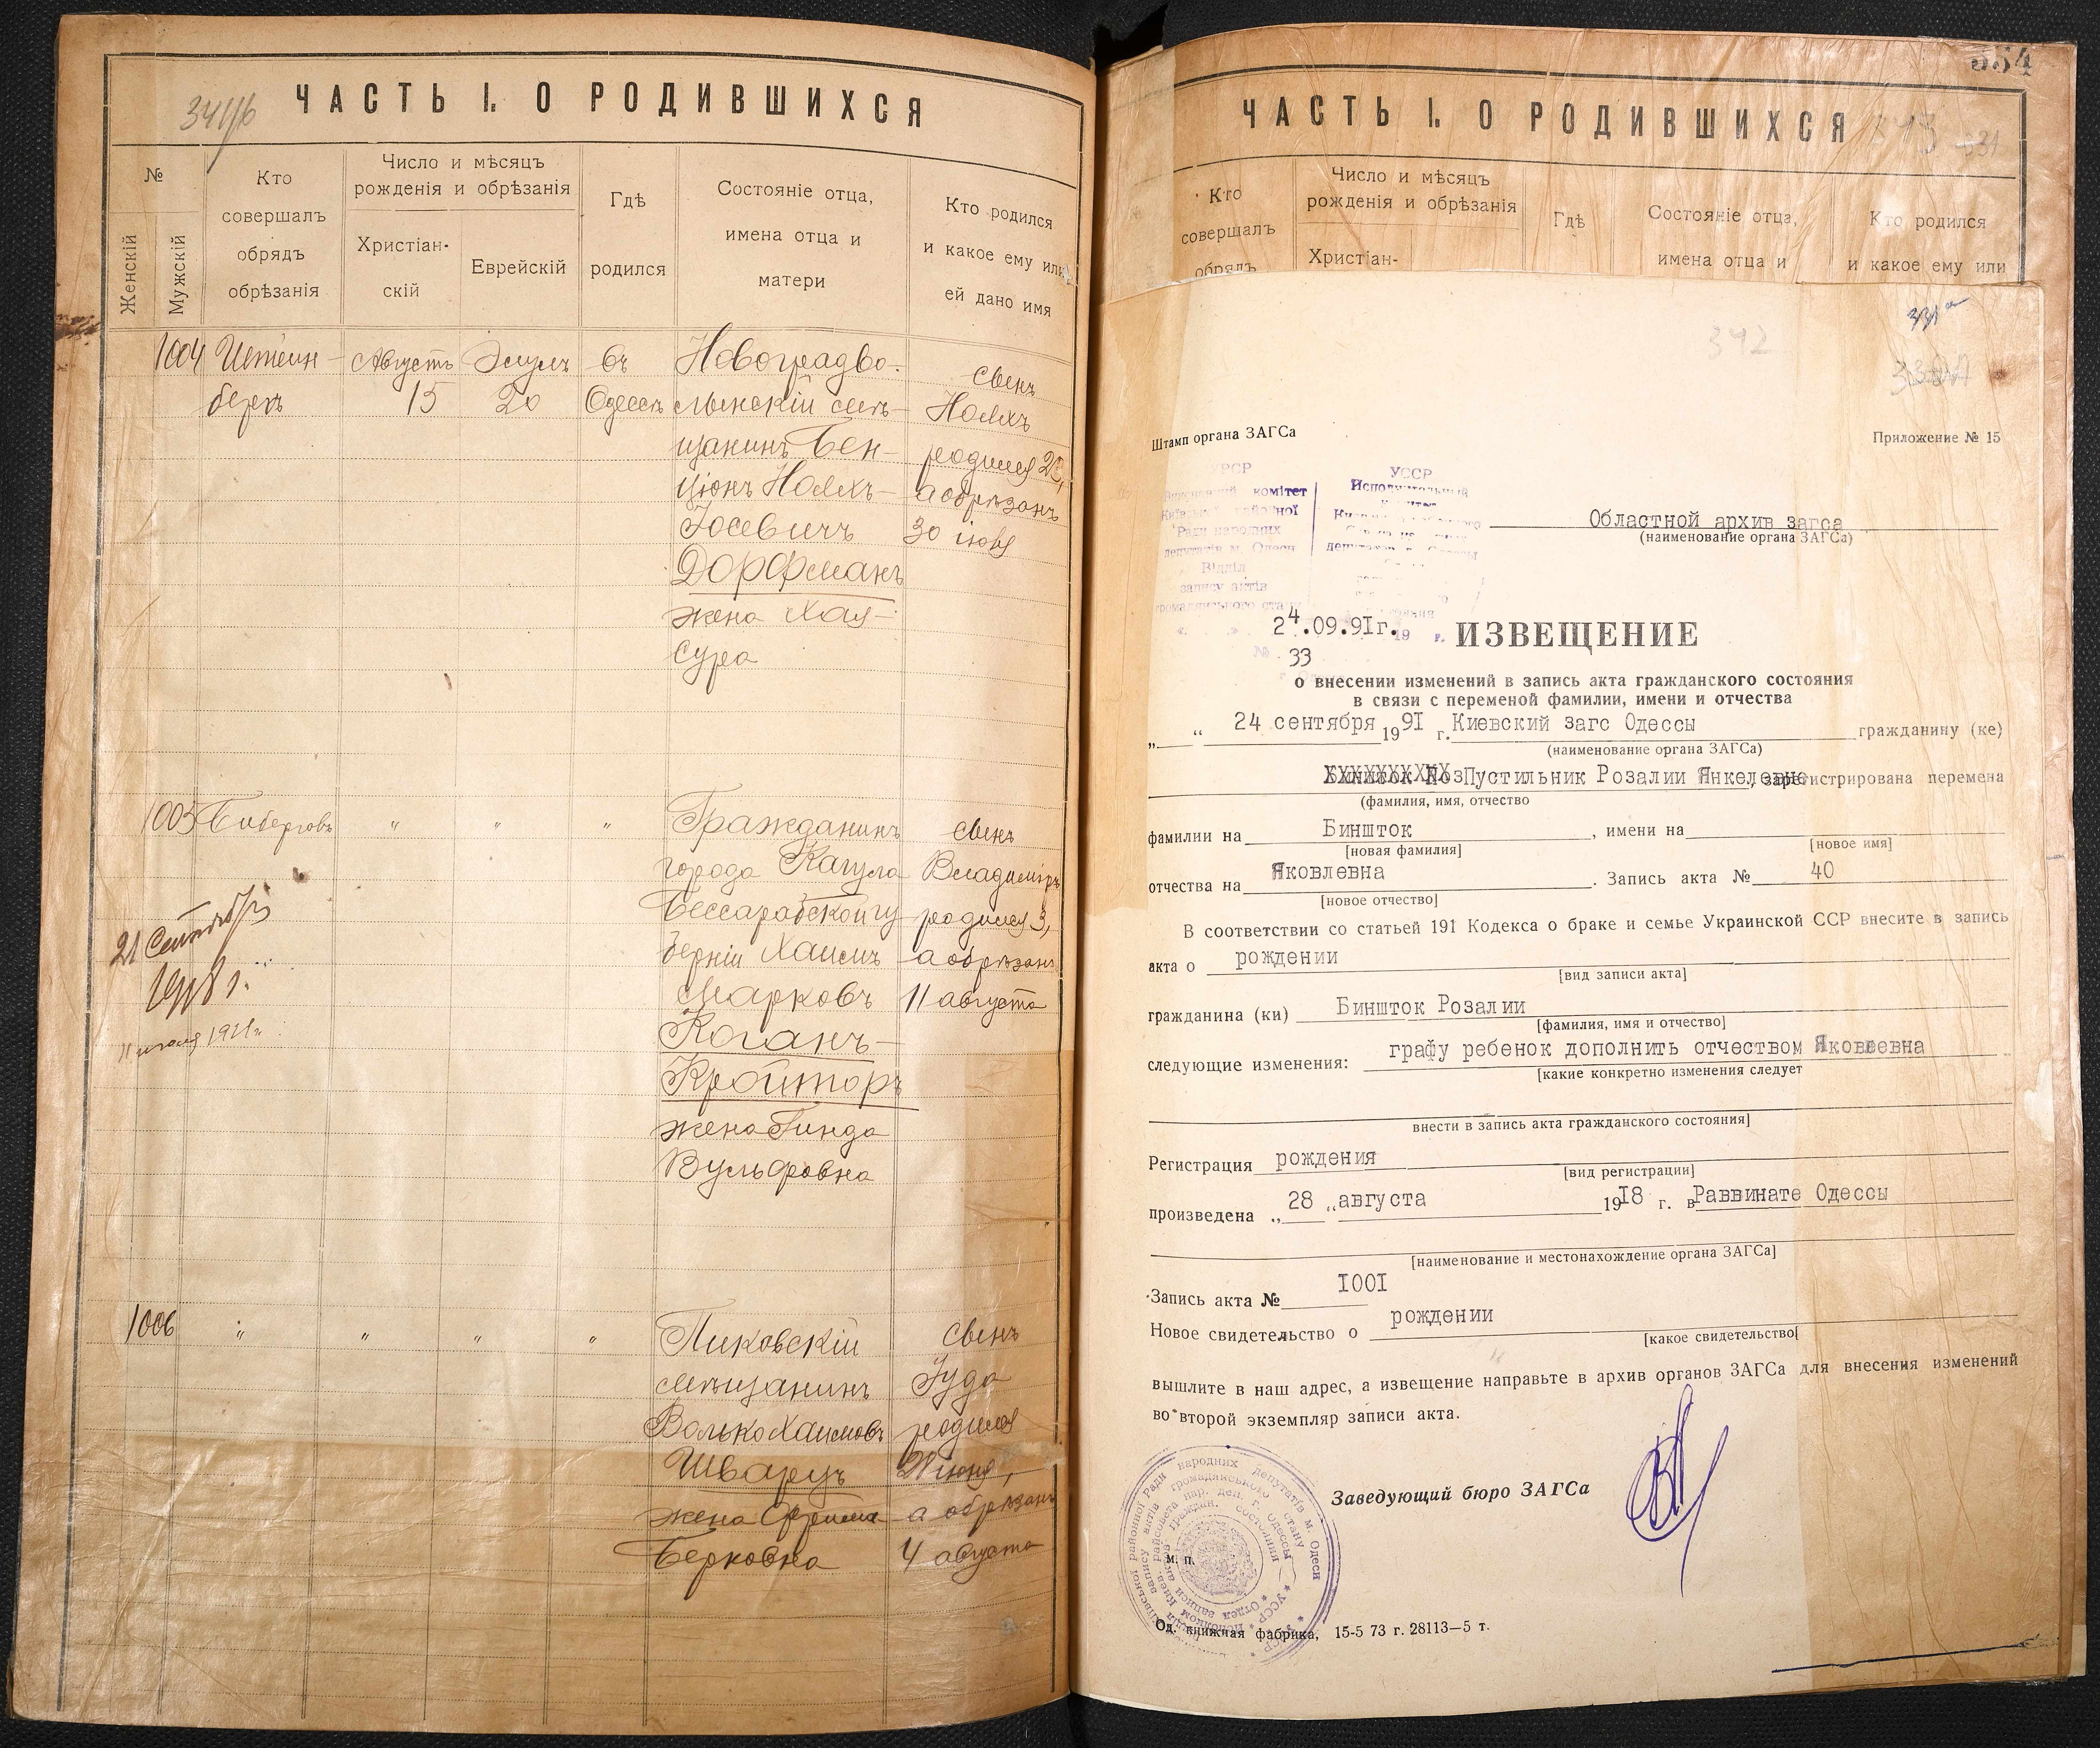 ЧАСТЬ I. О РОДИВШИХСЯ
№
Женскій
Мужскій
Кто
совершалъ
обрядъ
обрѣзанія
Число и мѣсяцъ
рожденія и обрѣзанія
Христіан-
скій
Еврейскій
Гдѣ
родился
Состояніе отца,
имена отца и
матери
Кто родился
и какое ему или
ей дано имя
1004 Штейн- Августъ Элулъ въ Новоградво-
сынъ
беркъ 15 20 Одессѣ лынскій мѣ-
Нояхъ
щанинъ Бен-
родился
ціонъ Нояхъ-
а обрѣзанъ
Іосевичъ
30 іюля
Дорфманъ
жена Хая-
Сура
1005 " " " Гражданинъ сынъ
города Кагула Владиміръ
Бессарабской гу- родился 3,
берніи Хаимъ а обрѣзанъ
Марковъ 11 августа
Коганъ-
Кройторъ
жена Гинда
Вульфовна
21 Сентября
1918 г.
1006 " " " " Пиковскій сынъ
мѣщанинъ Іуда
Волько Хаимовъ родился
Шварцъ 28 іюня,
жена Фрима а обрѣзанъ
Берковна 4 августа
ЧАСТЬ I. О РОДИВШИХСЯ
Кто
совершалъ
обрядъ
Число и мѣсяцъ
рожденія и обрѣзанія
Христіан-
Гдѣ
Состояніе отца,
имена отца и
Кто родился
и какое ему или
342
Штамп органа ЗАГСа
Приложение № 15
УРСР
комітет
Ради народних
депутатів м. Одеси
Відділ
запису актів
громадянського
УССР
Исполнительный
Областной архив загса
(наименование органа ЗАГСа)
24.09.91г.
№ 33
ИЗВЕЩЕНИЕ
о внесении изменений в запись акта гражданского состояния
в связи с переменой фамилии, имени и отчества
„ “ 24 сентября 1991 г. Киевский загс Одессы гражданину (ке)
(наименование органа ЗАГСа)
Пустильник Розалии Янкелевне, зарегистрирована перемена
(фамилия, имя, отчество
фамилии на Биншток, имени на
[новая фамилия] [новое имя]
отчества на Яковлевна. Запись акта № 40
[новое отчество]
В соответствии со статьей 191 Кодекса о браке и семье Украинской ССР внесите в запись
акта о рождении
[вид записи акта]
гражданина (ки) Биншток Розалии
[фамилия, имя и отчество]
следующие изменения: графу ребенок дополнить отчеством Яковлевна
[какие конкретно изменения следует
внести в запись акта гражданского состояния]
Регистрация рождения
[вид регистрации]
произведена „ 28 „ августа 1918 г. в Раввинате Одессы
[наименование и местонахождение органа ЗАГСа]
Запись акта № 1001
Новое свидетельство о рождении
[какое свидетельство[
вышлите в наш адрес, а извещение направьте в архив органов ЗАГСа для внесения изменений
во второй экземпляр записи акта.
Заведующий бюро ЗАГСа
м. п.
Од. книжная фабрика, 15-5 73 г. 28113—5 т.